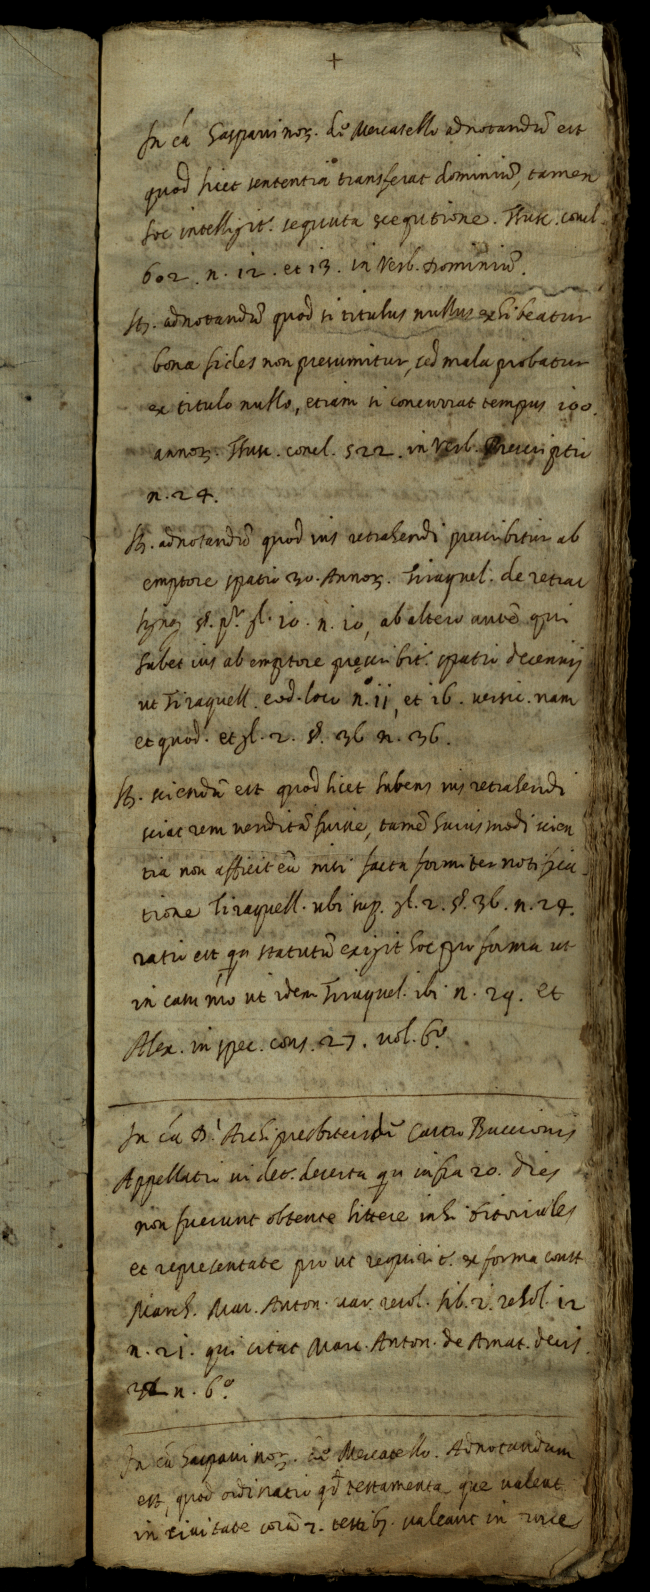 +
In cá Gasparinor. de Mercatello adnotandũ est
quod licet sententia transferat dominiũ, tamen
hoc intelligit. sequuta execqutione. Thusc. concl.
602. n. 12. et 13. in Verb. Dominiũ.
It. adnotandũ quod si titulus nullus exhibeatur
bona fides non presumitur, sed mala probatur
ex titulo nullo, etiam si concurrat tempus 100.
annor. Thusc. concl. 522. in Verb. Prescriptio
n. 24.
It. adnotandũ quod ius retrahendi prescribitur ab
emptore spatio 30. Annor. Tiraquel. de retrac
§. pr. gl. 10. n. 10, ab altero autẽ qui
habet ius ab emptore prescribit. spatio decennij
ut Tiraquell. eod. loco n. 11, et 16. versic. nam
et quod. et gl. 2. §. 36 n. 36.
It. sciendũ est quod licet habens ius retrahendi
sciat rem venditã fuisse, tamẽ huiusmodi scien
tia non afficit eũ nisi facta formiter notifica
tione Tiraquell. ubi sup. gl. 2. §. 36. n. 24.
ratio est qu statutũ exigit hoc pro forma ut
in casu nro ut idem Tiraquel. ibi n. 29. et
Alex. in spec. cons. 27. vol. 6º.
In cá D. Archipresbiteri dũ Castro Buccionis
Appellatio videt. deserta qu infra 20. dies
non fuerunt obtente littere inhibitoriales
et representate pro ut requirit. ex forma const
March. Mar. Anton. var. resol. lib. 2. resol. 12
n. 21. qui citat Marc. Anton. de Amat. decis.
32 n. 6º
In cá Gasparinor. de Mercatello. Adnotandum
est, quod ordinatio qd testamenta que valent
in civitate corã 2. testib. valeant in rure